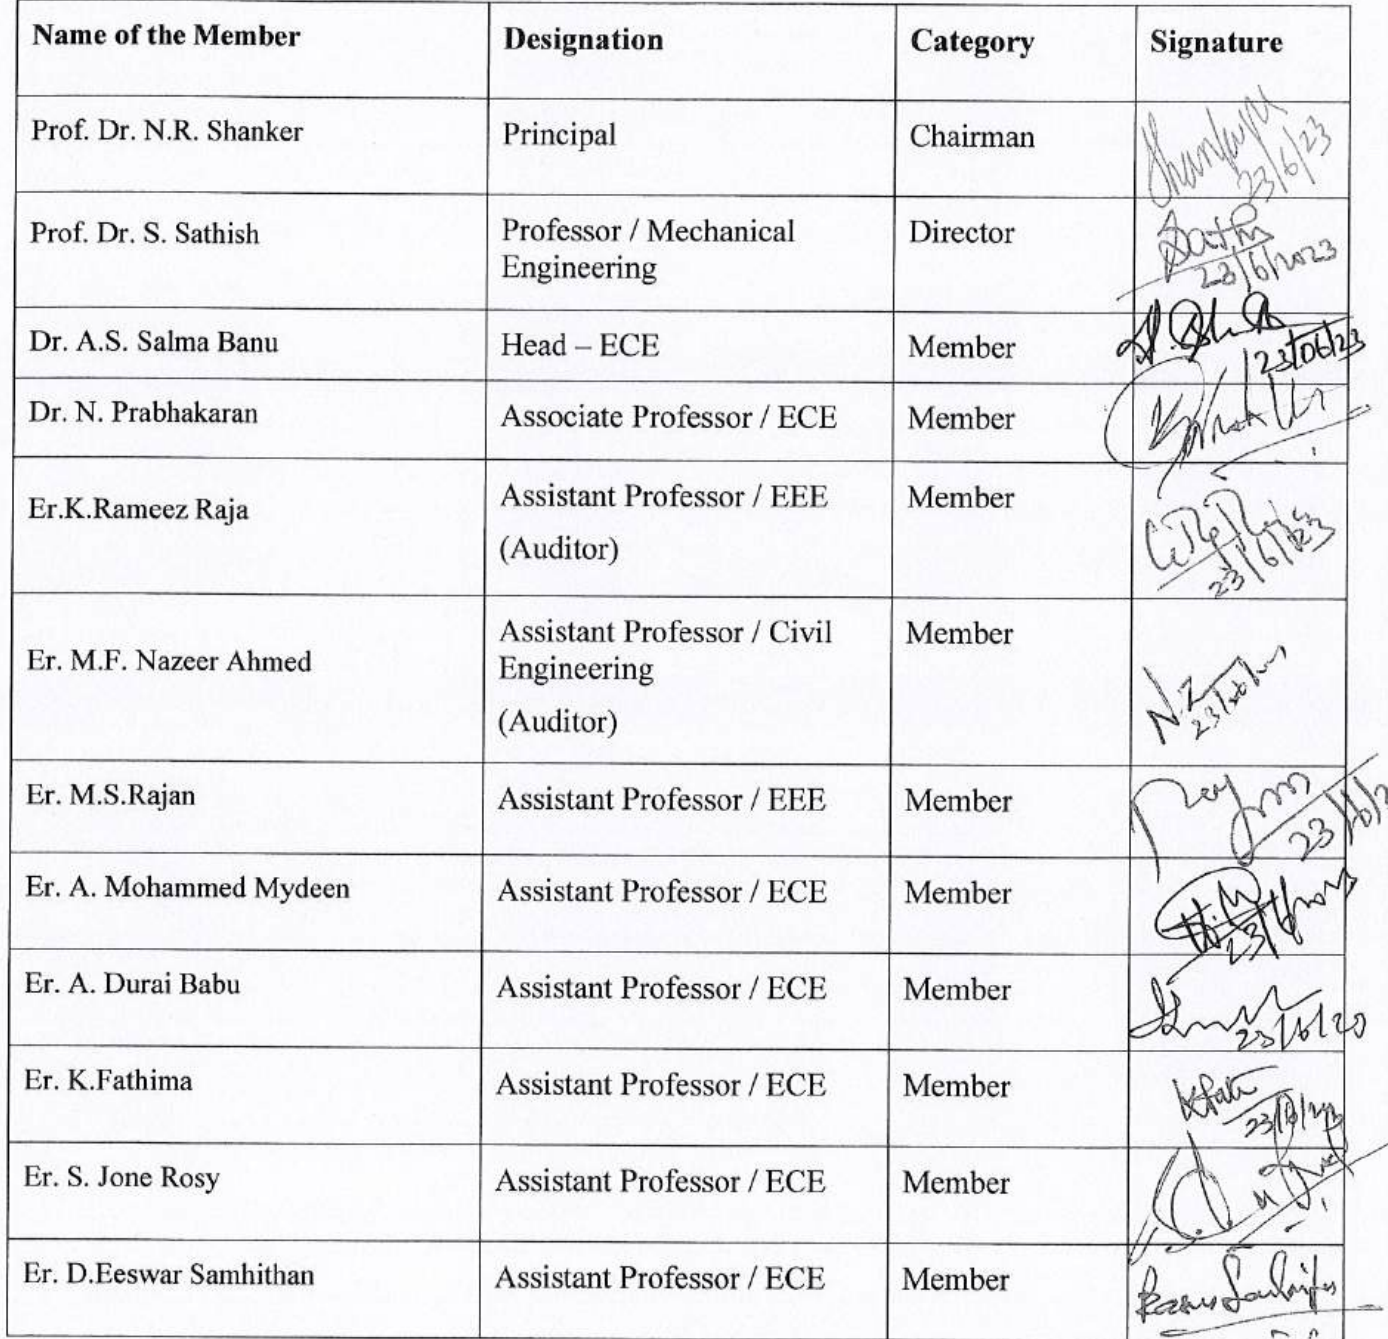 Name of the Member Designation Category Signature
Prof. Dr. N.R. Shanker Principal Chairman
23/6/23
Prof. Dr. S. Sathish Professor / Mechanical Director
Engineering
23/6/2023
Dr. A.S. Salma Banu Head – ECE Member
23/06/23
Dr. N. Prabhakaran Associate Professor / ECE Member
Er.K.Rameez Raja Assistant Professor / EEE Member
(Auditor)
23/6/23
Assistant Professor / Civil Member
Er. M.F. Nazeer Ahmed Engineering
(Auditor)
Er. M.S.Rajan Assistant Professor / EEE Member
Er. A. Mohammed Mydeen Assistant Professor / ECE Member
Er. A. Durai Babu Assistant Professor / ECE Member
Er. K.Fathima Assistant Professor / ECE Member
Er. S. Jone Rosy Assistant Professor / ECE Member
Er. D.Eeswar Samhithan Assistant Professor / ECE Member